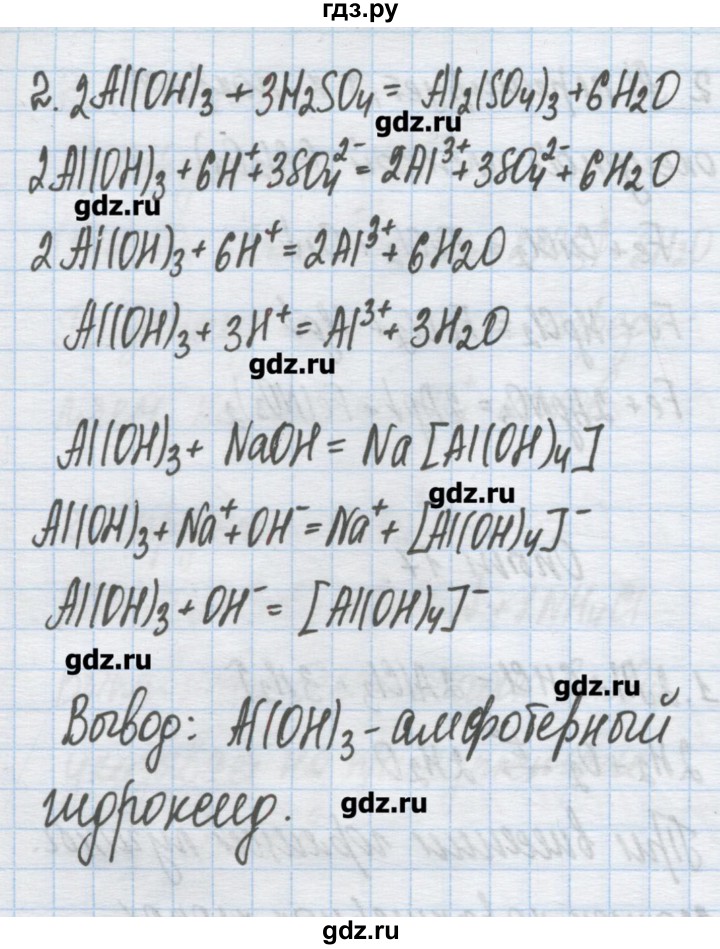 гдз.ру
2. 2Al(OH)₃ + 3H₂SO₄ = Al₂(SO₄)₃ + 6H₂O
gdz.ru
2Al(OH)₃ + 6H⁺ + 3SO₄²⁻ = 2Al³⁺ + 3SO₄²⁻ + 6H₂O
gdz.ru
2Al(OH)₃ + 6H⁺ = 2Al³⁺ + 6H₂O
Al(OH)₃ + 3H⁺ = Al³⁺ + 3H₂O
gdz.ru
Al(OH)₃ + NaOH = Na[Al(OH)₄]
gdz.ru
Al(OH)₃ + Na⁺ + OH⁻ = Na⁺ + [Al(OH)₄]⁻
Al(OH)₃ + OH⁻ = [Al(OH)₄]⁻
gdz.ru
gdz.ru
Вывод: Al(OH)₃ - амфотерный
гидроксид.
gdz.ru
gdz.ru